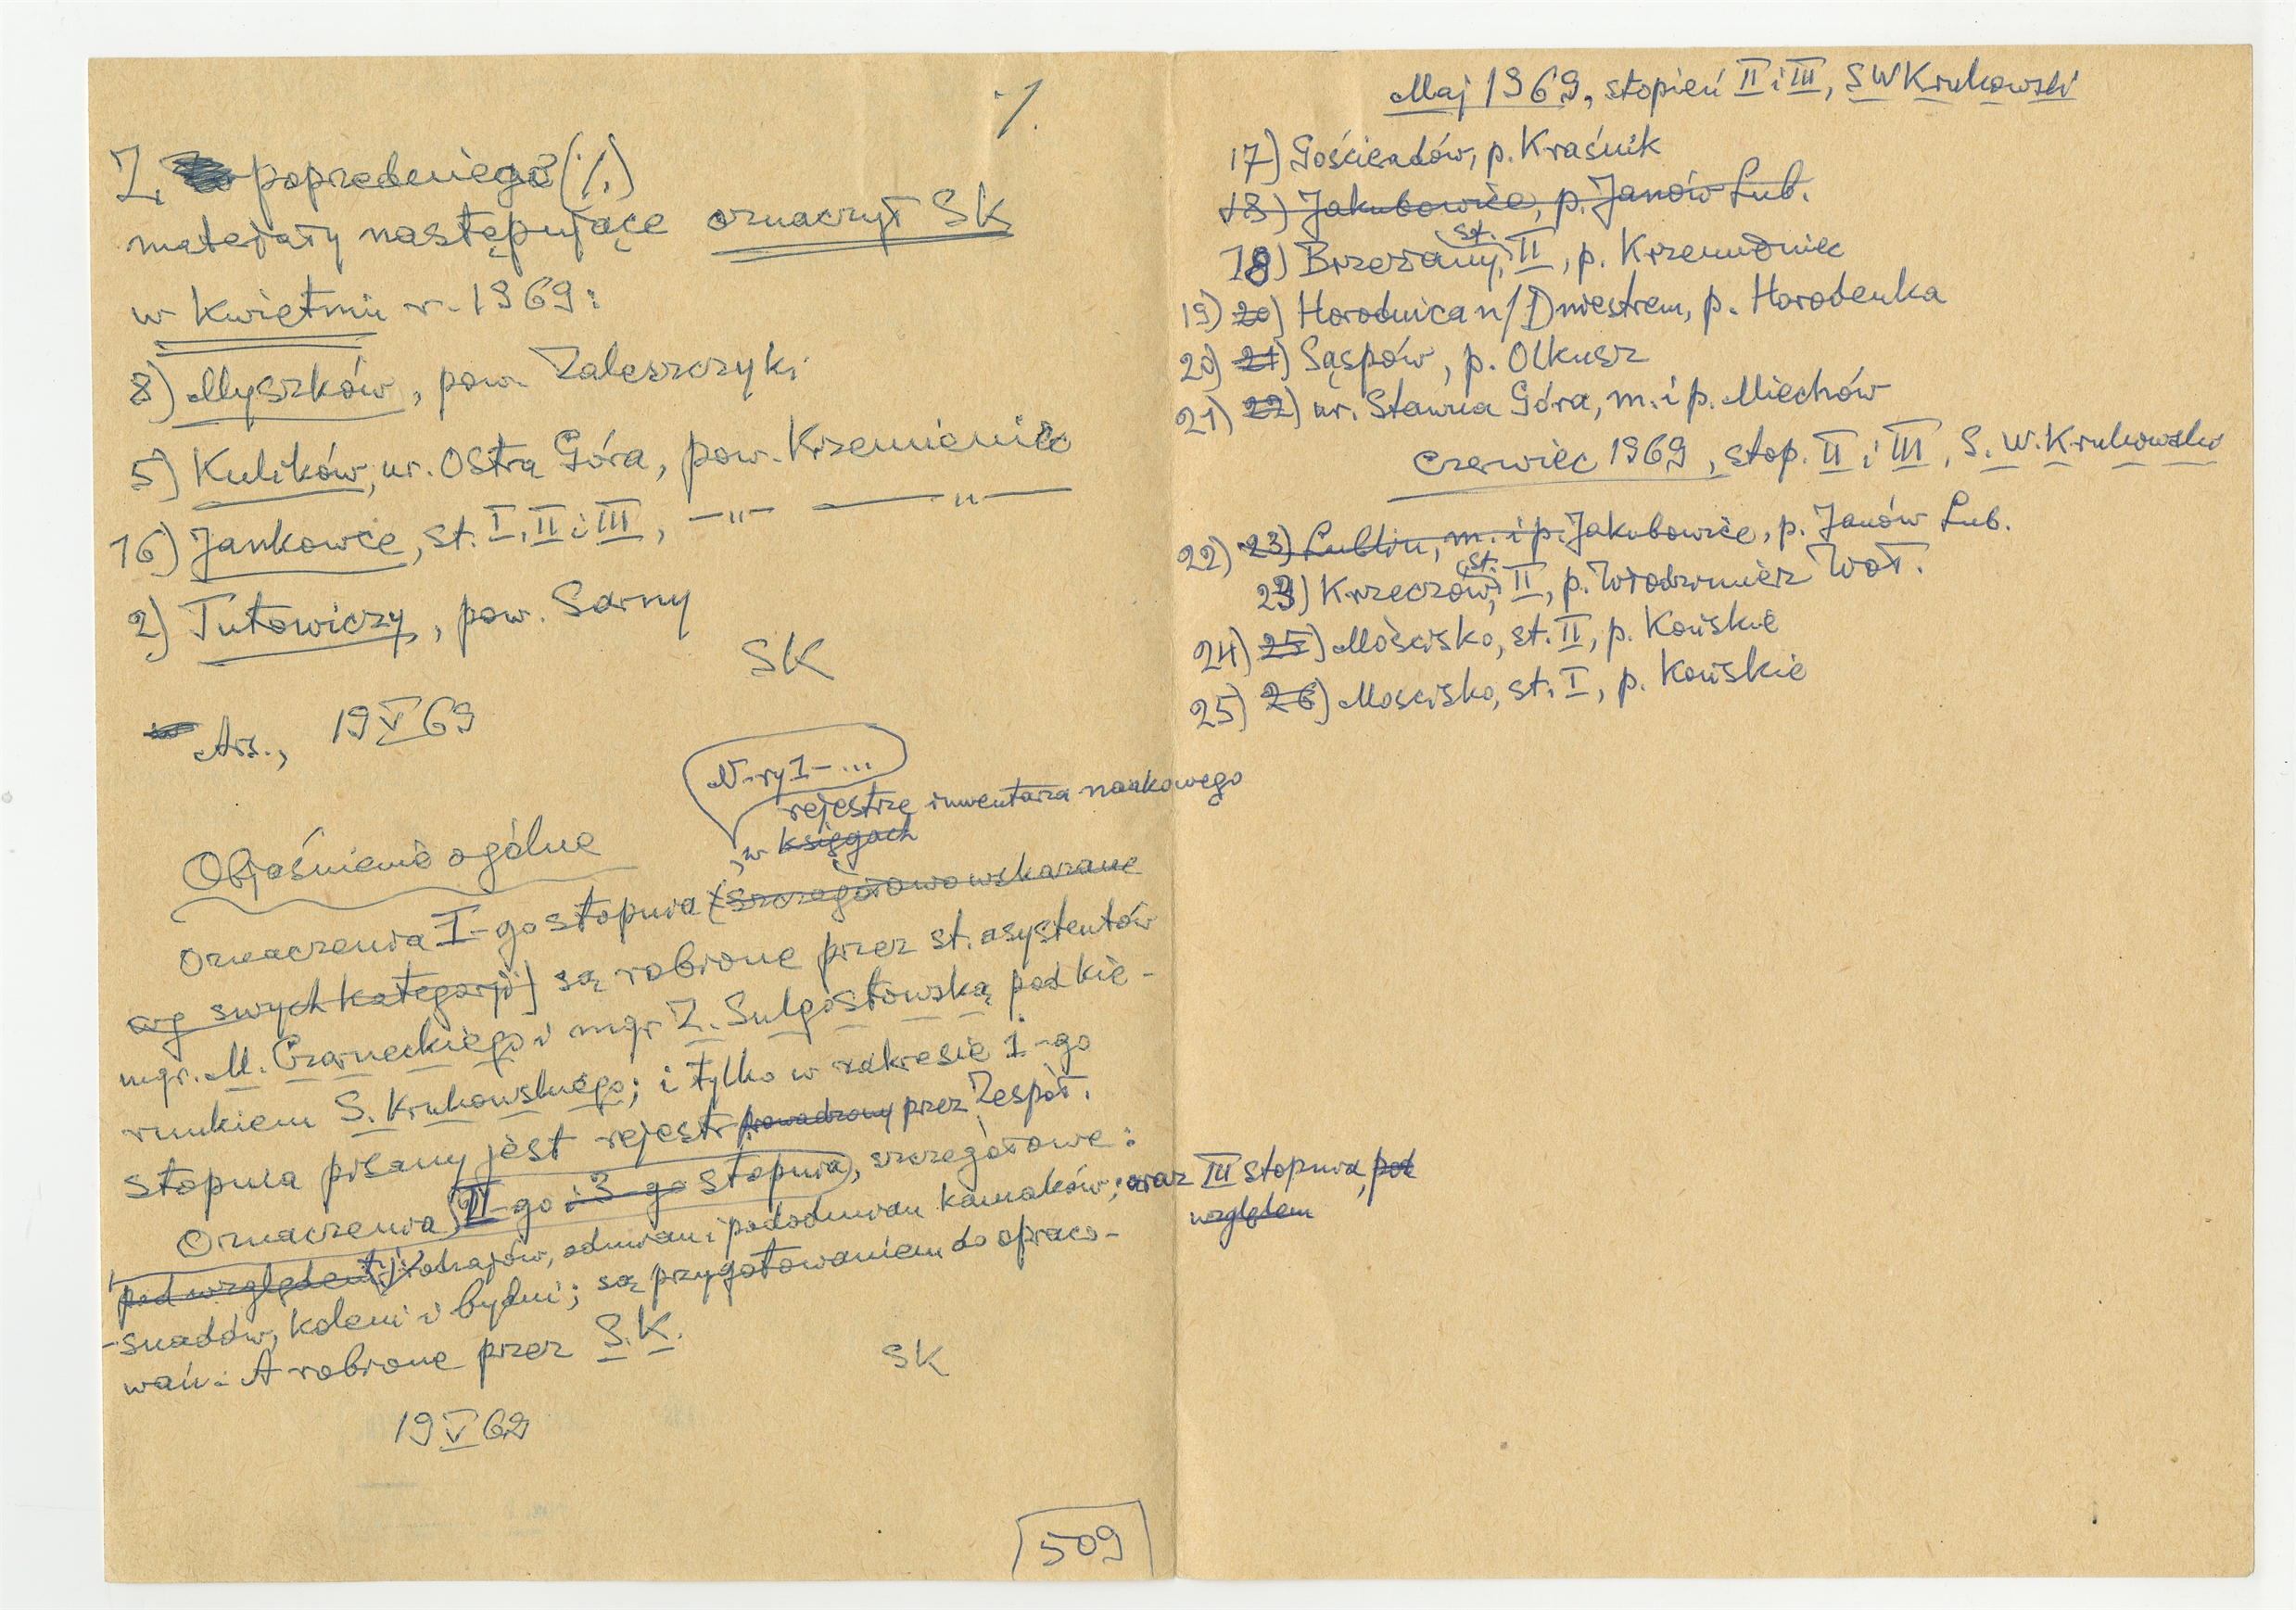 ·/.
Z poprzedniego (·/.)
materjały następujące oznaczył SK
w kwietniu r. 1969:
8) Myszków, pow. Zaleszczyki
5) Kulików, ur. Ostra Góra, pow. Krzemieniec
16) Jankowce, st. I, II i III, —„— ——„——
2) Tutowiczy, pow. Sarny
SK
19 V 69
N-ry 1-...
rejestrze inwentarza naukowego
, w księgach
Objaśnienie ogólne
Oznaczenia I-go stopnia (szczegółowo wskazane
wg swych kategorji) są robione przez st. asystentów
mgr. M. Czarneckiego i mgr Z. Sulgostowską pod kie-
runkiem S. Krukowskiego; i tylko w zakresie 1-go
stopnia pisany jest rejestr prowadzony przez Zespół.
Oznaczenia II-go i 3-go stopnia, szczegółowe:
pod względem rodzajów, odmian i pododmian kamaków; oraz III stopnia, pod
względem
-snadów, kolem i bydni; są przygotowaniem do opraco-
wań. A robione przez S.K.
SK
19 V 69
509
Maj 1969, stopień II i III, S W Krukowski
17) Gościeradów, p. Kraśnik
18) Jakubowice, p. Janów Lub.
18) Brzeżany, st. II, p. Krzemieniec
19) 20) Horodnica n/Dniestrem, p. Horodenka
20) 21) Sąspów, p. Olkusz
21) 22) ur. Sławna Góra, m. i p. Miechów
Czerwiec 1969, stop. II i III, S. W. Krukowski
22) 23) Lublin, m. i p. Jakubowice, p. Janów Lub.
23) Krzeczów, st. II, p. Włodzimierz Woł.
24) 25) Mościsko, st. II, p. Końskie
25) 26) Mościsko, st. I, p. Końskie